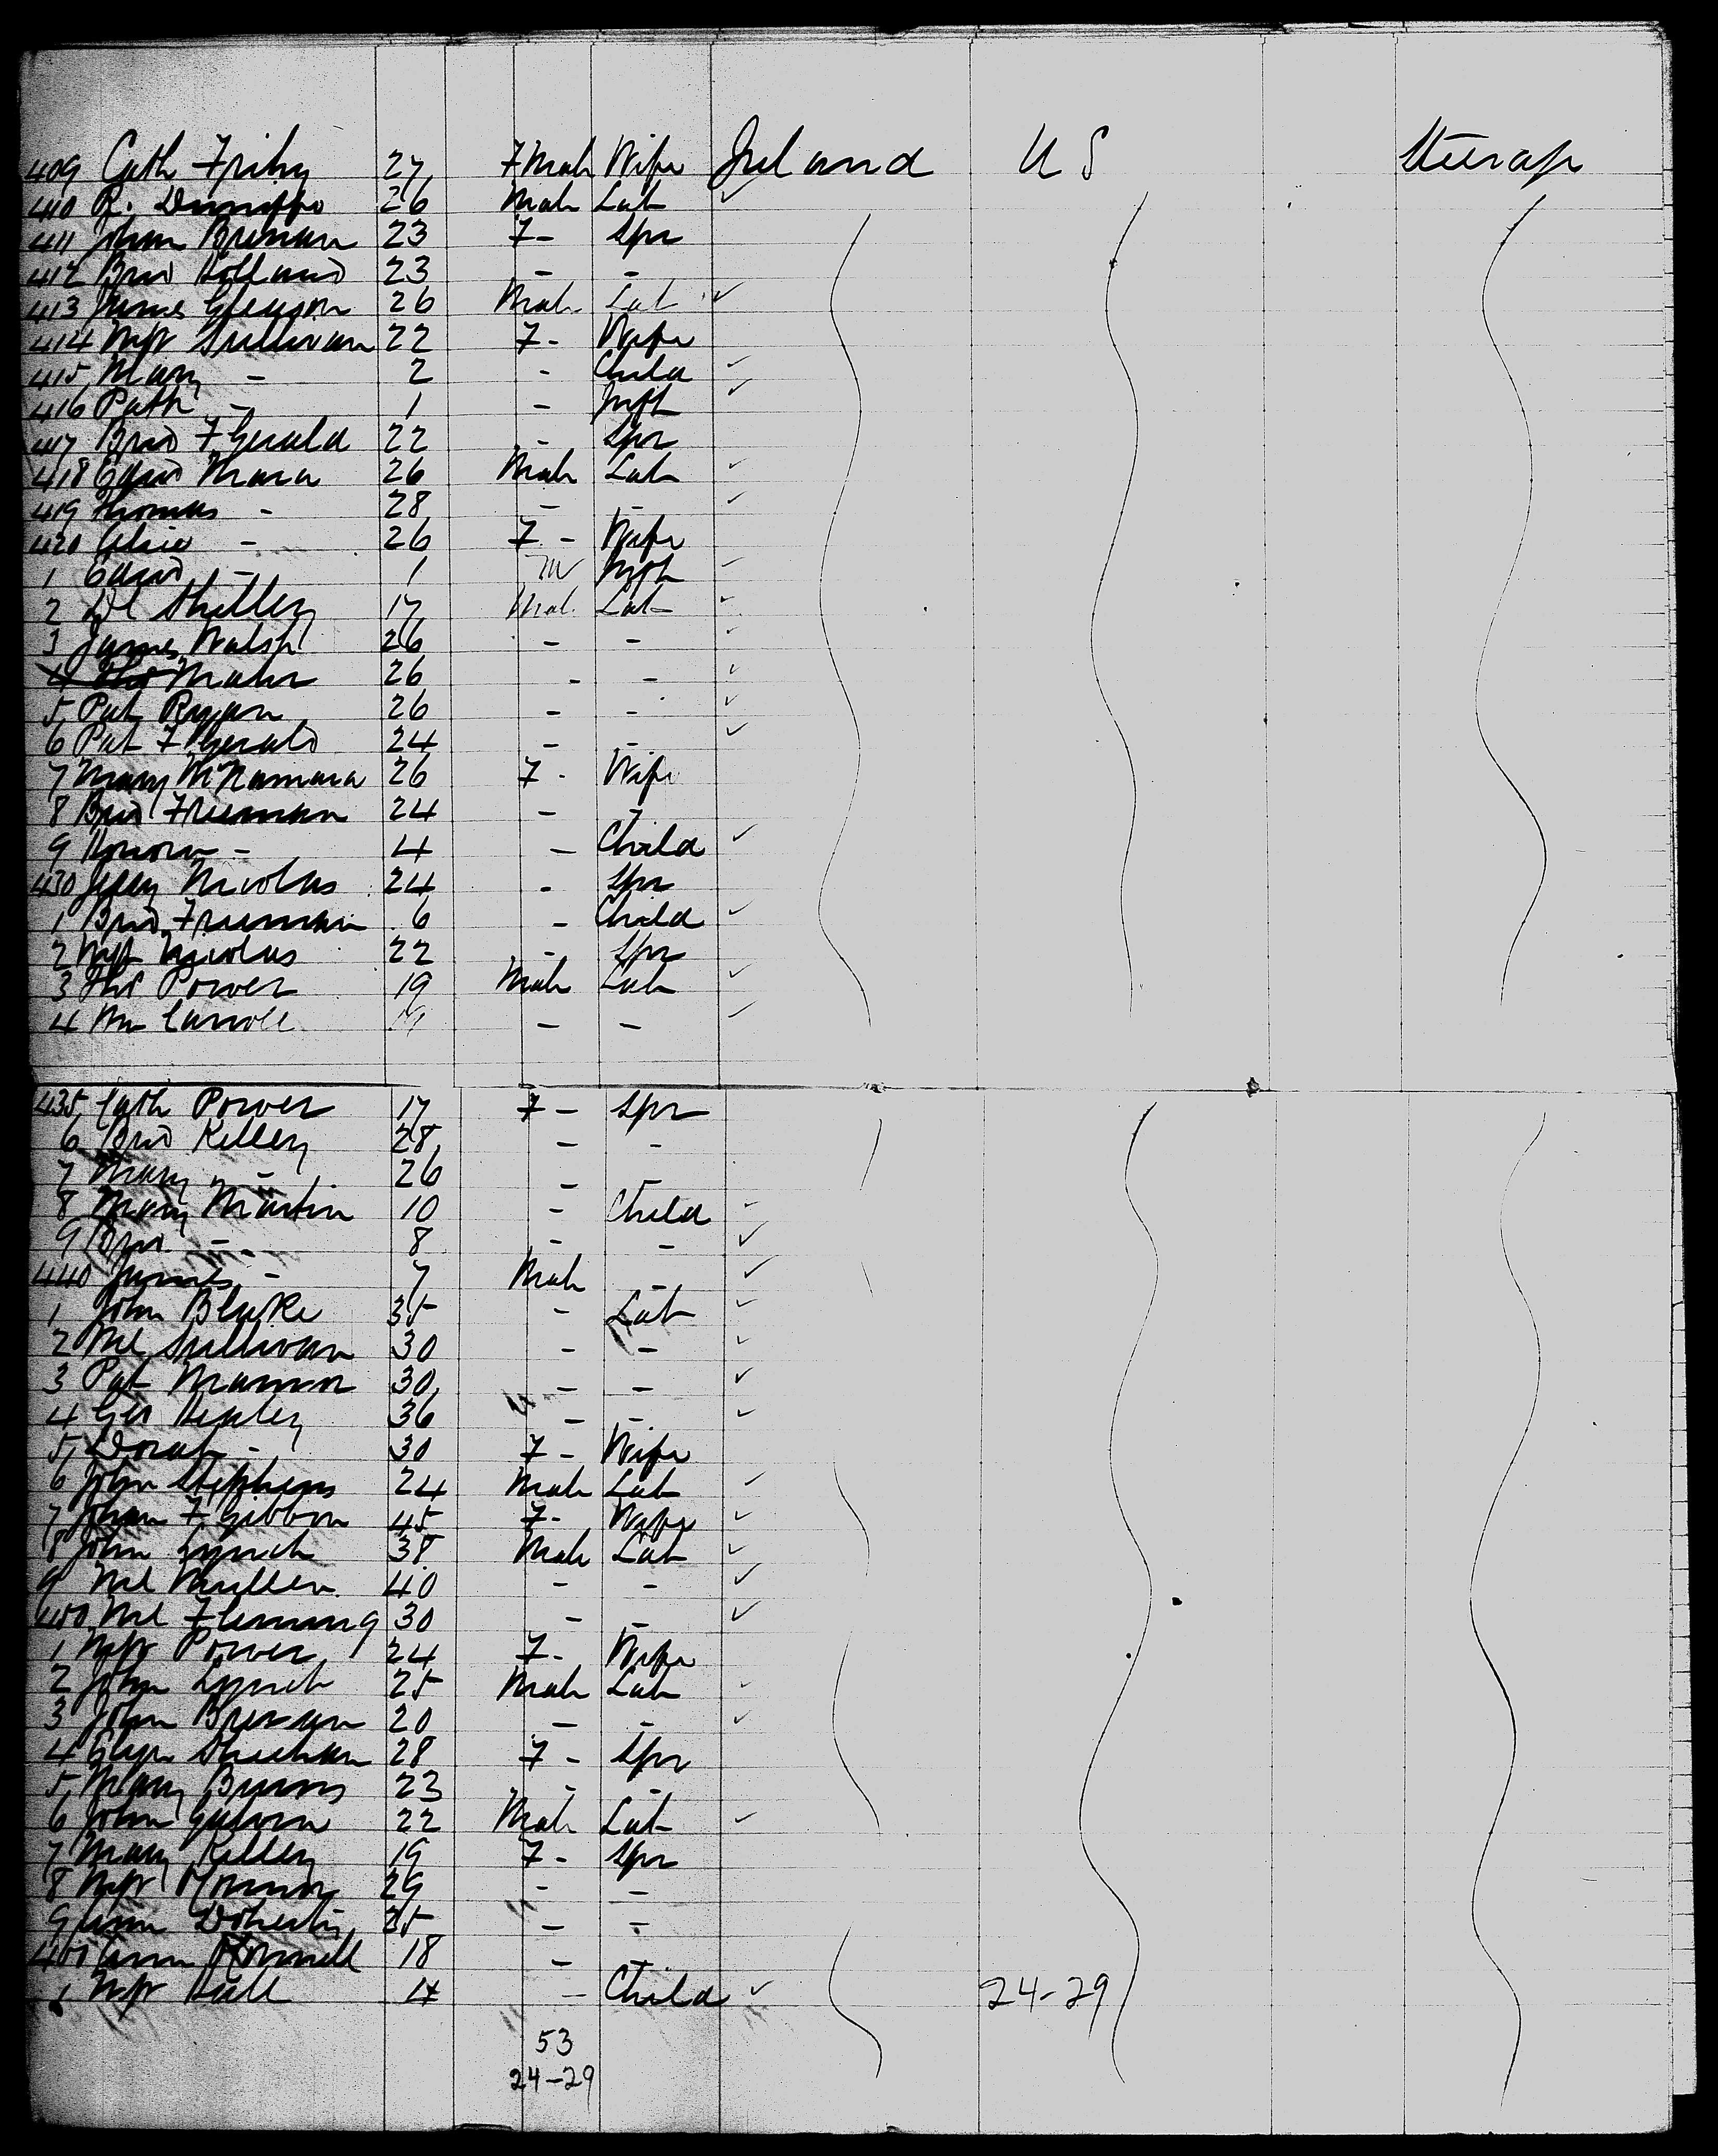 409 Cath 27 7 Male Wife Ireland U S Steerage
410 R. 26 Male Lab
411 Johan Brenan 23 7 - Spr
412 Brid Holland 23 - -
413 James Gleason 26 Male Lab
414 Mgt Sullivan 22 7 - Wife
415 Mary - 2 - Child
416 Path - 1 - Inft
417 Brid F Gerald 22 - Spr
418 Edwd Mara 26 Male Lab
419 Thomas - 28 - -
420 Alice - 26 7 - Wife
1 Edwd - 1 M Inft
2 Ml Shelley 17 Mal. Lab
3 James Walsh 26 - -
4 Maher 26 - -
5 Pat Ryan 26 - -
6 Pat F Gerald 24 - -
7 Mary McNamara 26 7 - Wife
8 Brid Freeman 24 - -
9 Honora - 4 - Child
430 Nicolas 24 - Spr
1 Brid Freeman 6 - Child
2 Mgt Nicolas 22 - Spr
3 Thos Power 19 Male Lab
4 Wm Carroll 19 - -
435 Cath Power 17 7 - Spr
6 Brid Kelley 28 - -
7 Mary - 26 - -
8 Mary Martin 10 - Child
9 Brid - 8 - -
440 James - 7 Male -
1 John Blake 35 - Lab
2 Ml Sullivan 30 - -
3 Pat 30 - -
4 Geo Healey 36 - -
5 Dorah - 30 7 - Wife
6 John Stephens 24 Male Lab
7 Johan F Gibbon 45 7 - Wife
8 John Lynch 38 Male Lab
9 Ml Mullen 40 - -
450 Ml Fleming 30 - -
1 Mgt Power 24 7 - Wife
2 John Lynch 25 Male Lab
3 John Brenan 20 - -
4 Sheehan 28 7 - Spr
5 Mary Burns 23 - -
6 John 22 Male Lab
7 Mary Kelley 19 7 - Spr
8 Mgt 29 - -
9 Ann Doherty 25 - -
460 Ann 18 - -
1 Mgt Hall 4 - Child 24-29
53
24-29